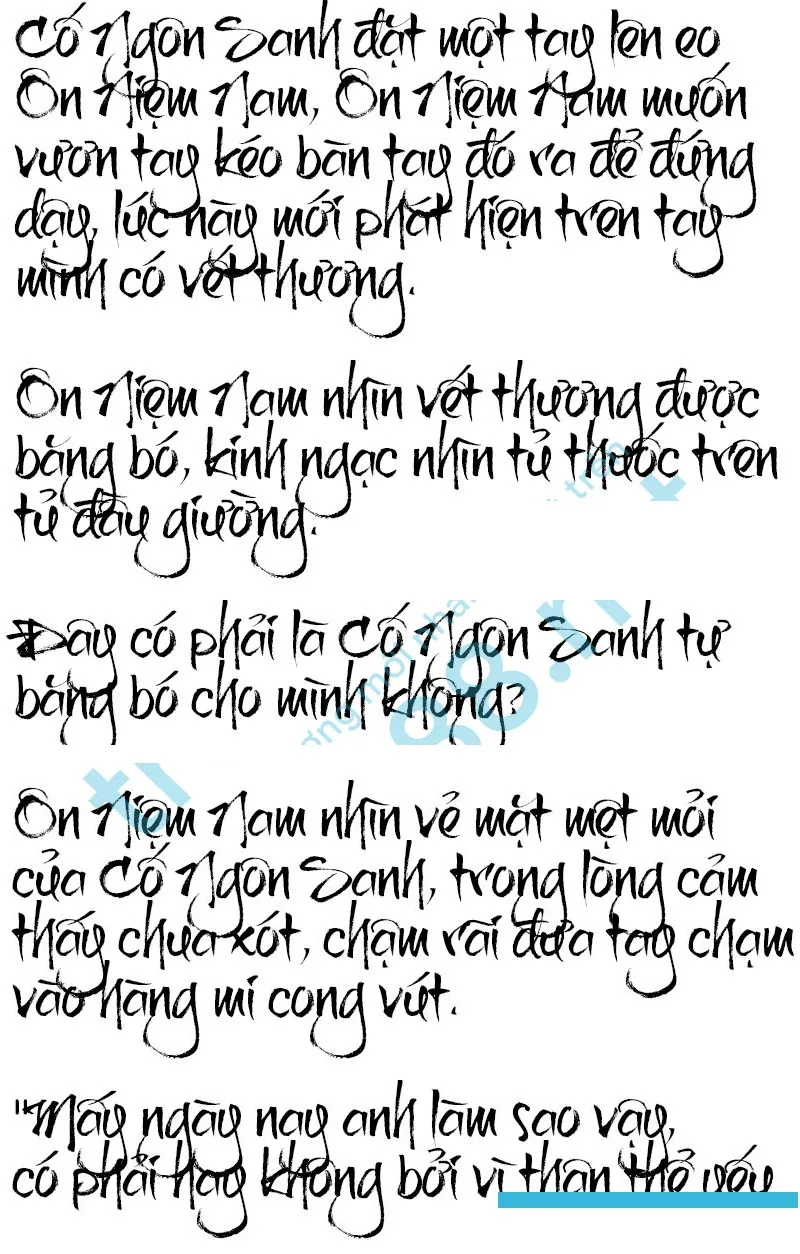 Cố Ngôn Sanh đặt một tay lên eo
Ôn Niệm Nam, Ôn Niệm Nam muốn
vươn tay kéo bàn tay đó ra để đứng
dậy, lúc này mới phát hiện trên tay
mình có vết thương.
Ôn Niệm Nam nhìn vết thương được
băng bó, kinh ngạc nhìn tủ thuốc trên
tủ đầu giường.
Đây có phải là Cố Ngôn Sanh tự
băng bó cho mình không?
Ôn Niệm Nam nhìn vẻ mặt mệt mỏi
của Cố Ngôn Sanh, trong lòng cảm
thấy chua xót, chậm rãi đưa tay chạm
vào hàng mi cong vút.
"Mấy ngày nay anh làm sao vậy,
có phải hay không bởi vì thân thể yếu